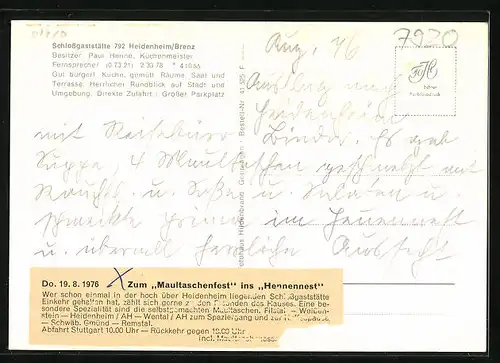 7920
Schloßgaststätte 792 Heidenheim/Brenz
Besitzer Paul Henne, Küchenmeister
Fernsprecher (0 73 21) 2 30 78
Gut bürgerl. Küche, gemütl. Räume Saal und
Terrasse. Herrlicher Rundblick auf Stadt und
Umgebung. Direkte Zufahrt - Großer Parkplatz
Aug. 76
Ausflug nach
Heidenheim
mit Reisebüro Binder. Es gab
Suppe, 4 Maultaschen geschmelzt mit
u. Soße u. Salaten u.
schmeckte prima im Hennennest
u. überall herrliche Aussicht
Do. 19. 8. 1976 X Zum „Maultaschenfest" ins „Hennennest"
Wer schon einmal in der hoch über Heidenheim liegenden Schloßgaststätte
Einkehr gehalten hat, zählt sich gerne zu den Freunden des Hauses. Eine be-
sondere Spezialität sind die selbstgemachten Maultaschen. Filstal – Weißen-
stein – Heidenheim / AH – Wental / AH zum Spaziergang und zur
– Schwäb. Gmünd – Remstal.
Abfahrt Stuttgart 10.00 Uhr – Rückkehr gegen 19.00 Uhr
incl.